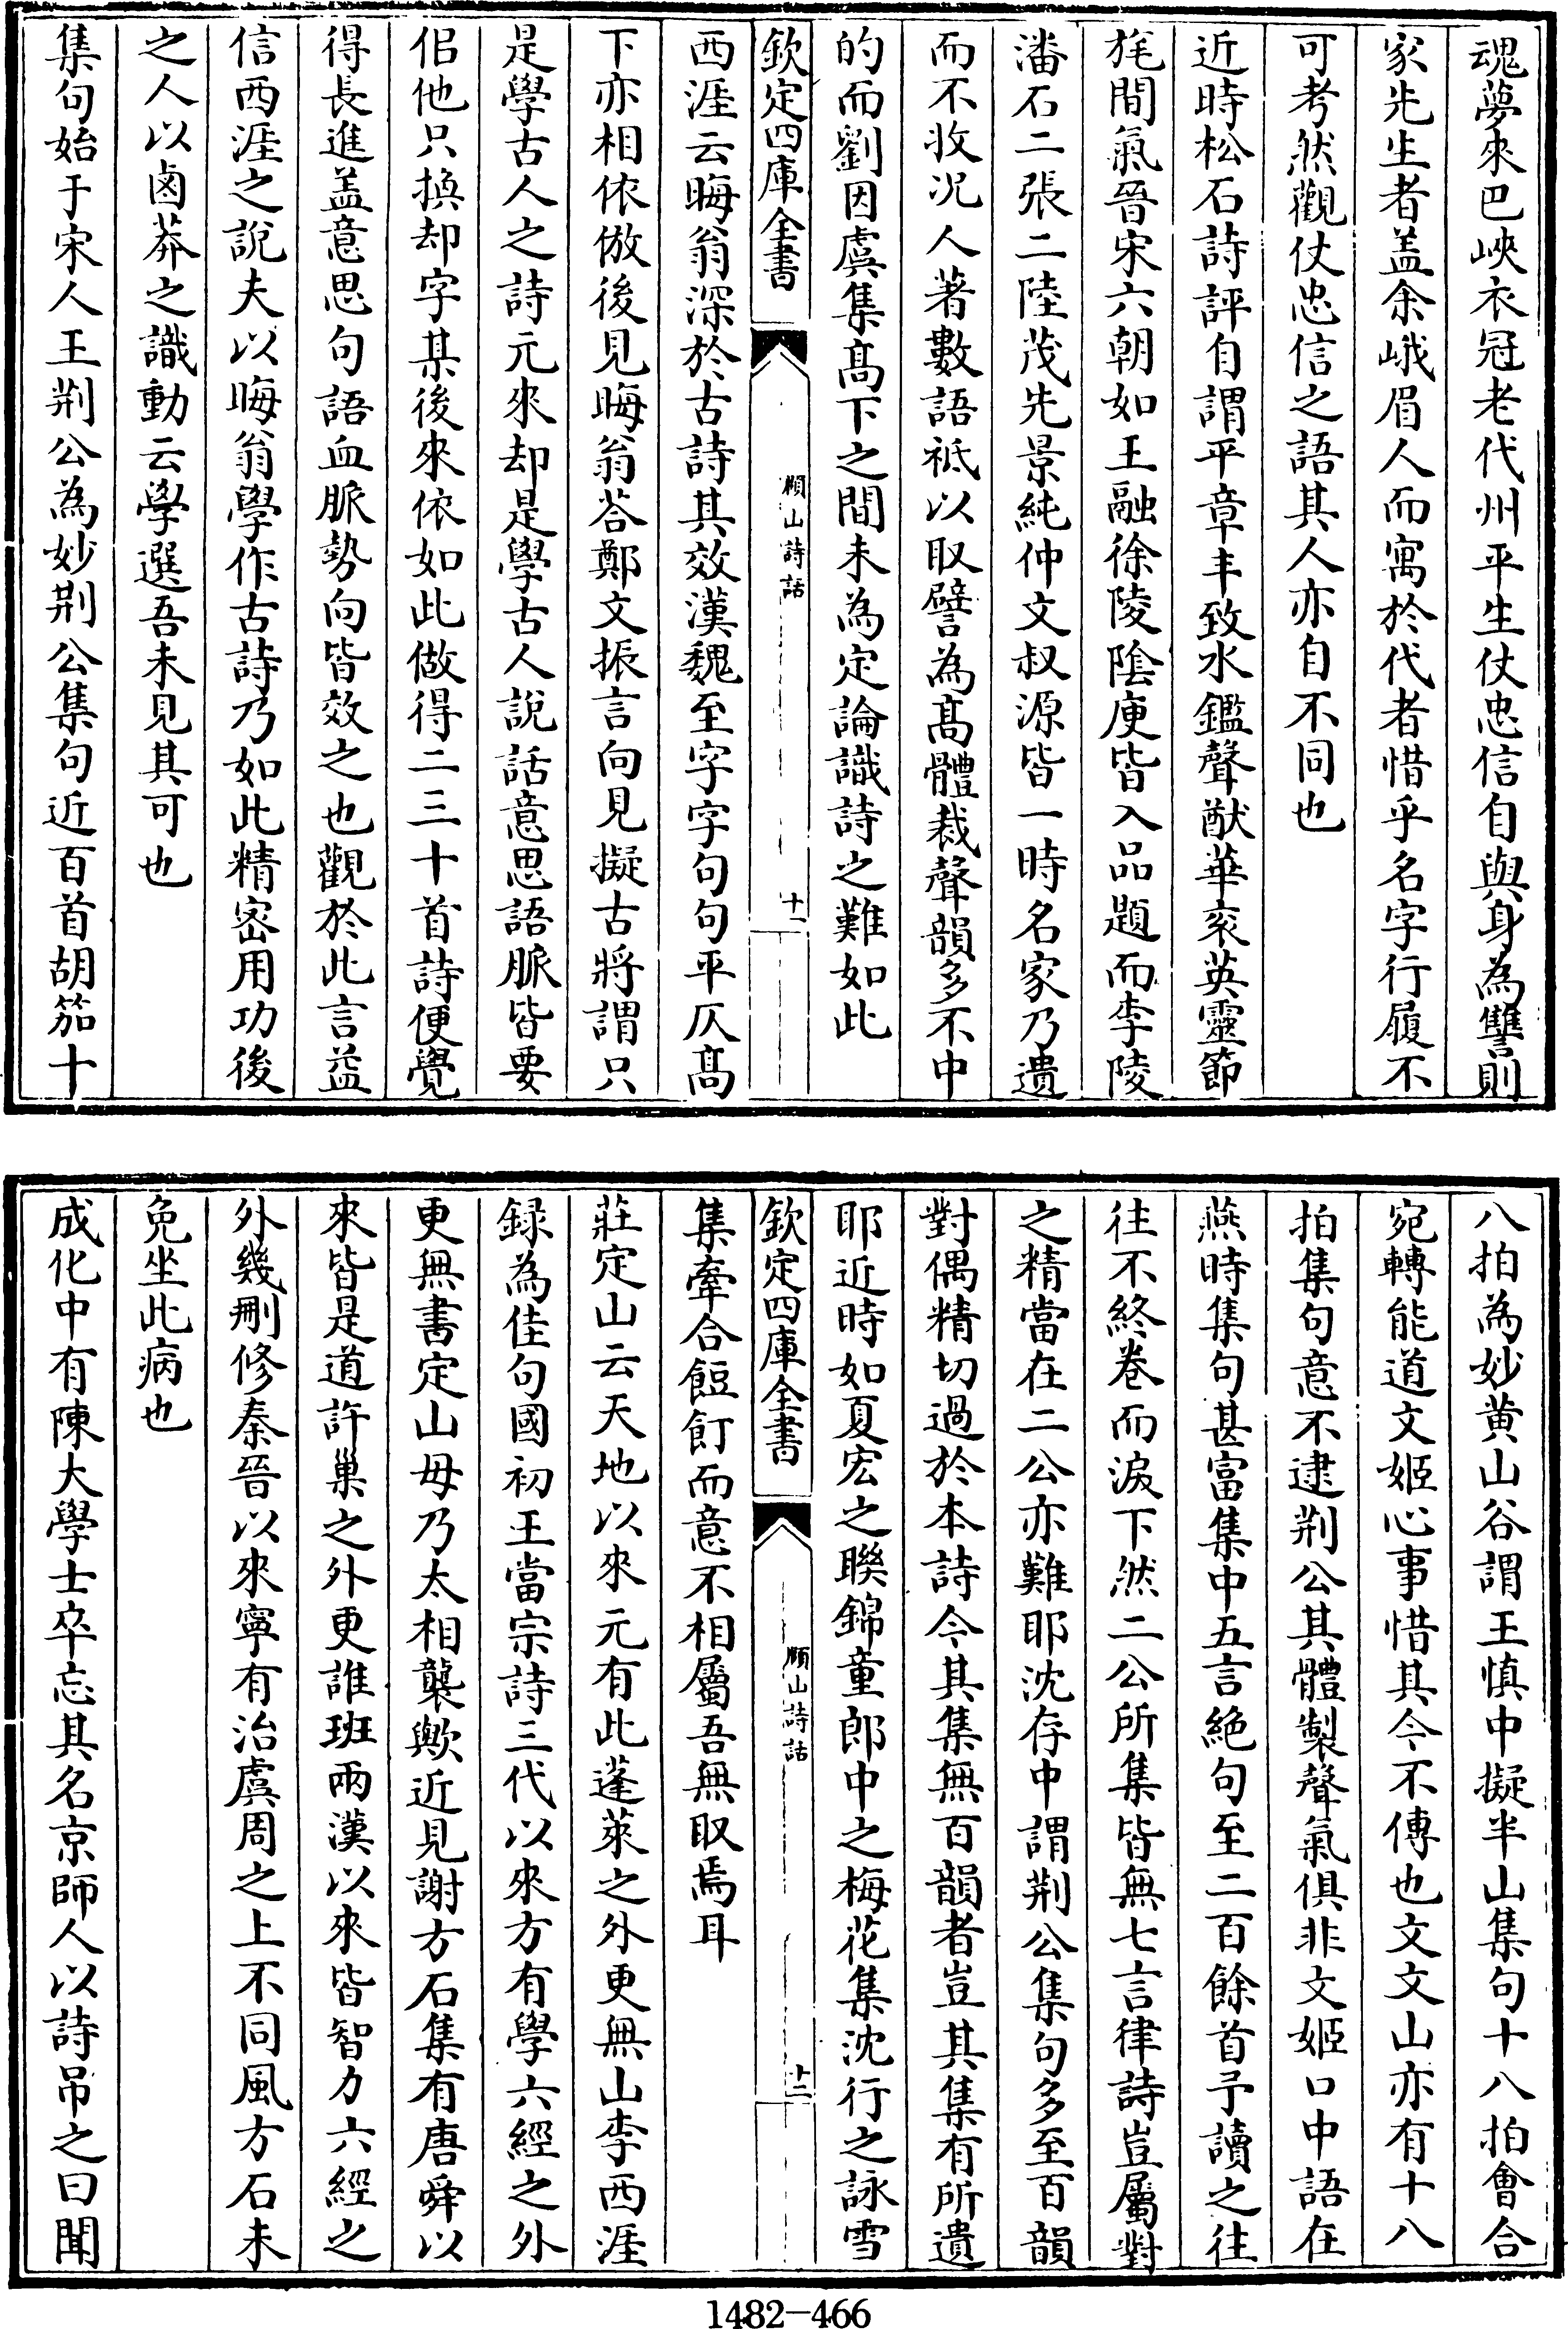 魂夢來巴峽衣冠老代州平生仗忠信自與身為讐則
家先生者盖余峨眉人而寓於代者惜乎名字行履不
可考然觀仗忠信之語其人亦自不同也
近時松石詩評自謂平章丰致水鑑聲猷華衮英靈節
旄間氣晉宋六朝如王融徐陵陰庾皆入品題而李陵
潘石二張二陸茂先景純仲文叔源皆一時名家乃遺
而不收况人著數語祇以取譬為髙體裁聲韻多不中
的而劉因虞集髙下之間未為定論識詩之難如此
欽定四庫全書
頤山詩話
十一
西涯云晦翁深於古詩其效漢魏至字字句句平仄髙
下亦相依倣後見晦翁答鄭文振言向見擬古將謂只
是學古人之詩元來却是學古人說話意思語脈皆要
侣他只換却字某後來依如此做得二三十首詩便覺
得長進盖意思句語血脈勢向皆效之也觀於此言益
信西涯之說夫以晦翁學作古詩乃如此精宻用功後
之人以鹵莽之識動云學選吾未見其可也
集句始于宋人王荆公為妙荆公集句近百首胡笳十
八拍為妙黄山谷謂王慎中擬半山集句十八拍會合
宛轉能道文姬心事惜其今不傳也文文山亦有十八
拍集句意不逮荆公其體製聲氣俱非文姬口中語在
燕時集句甚富集中五言絶句至二百餘首予讀之往
往不終卷而淚下然二公所集皆無七言律詩豈屬對
之精當在二公亦難耶沈存中謂荆公集句多至百韻
對偶精切過於本詩今其集無百韻者豈其集有所遺
耶近時如夏宏之聨錦童郎中之梅花集沈行之詠雪
欽定四庫全書
頤山詩話
十二
集牽合飣餖而意不相屬吾無取焉耳
莊定山云天地以來元有此蓬萊之外更無山李西涯
録為佳句國初王當宗詩三代以來方有學六經之外
更無書定山毋乃太相襲歟近見謝方石集有唐舜以
來皆是道許巢之外更誰班兩漢以來皆智力六經之
外幾刪修秦晉以來寧有治虞周之上不同風方石未
免坐此病也
成化中有陳大學士卒忘其名京師人以詩吊之曰聞
1482-466